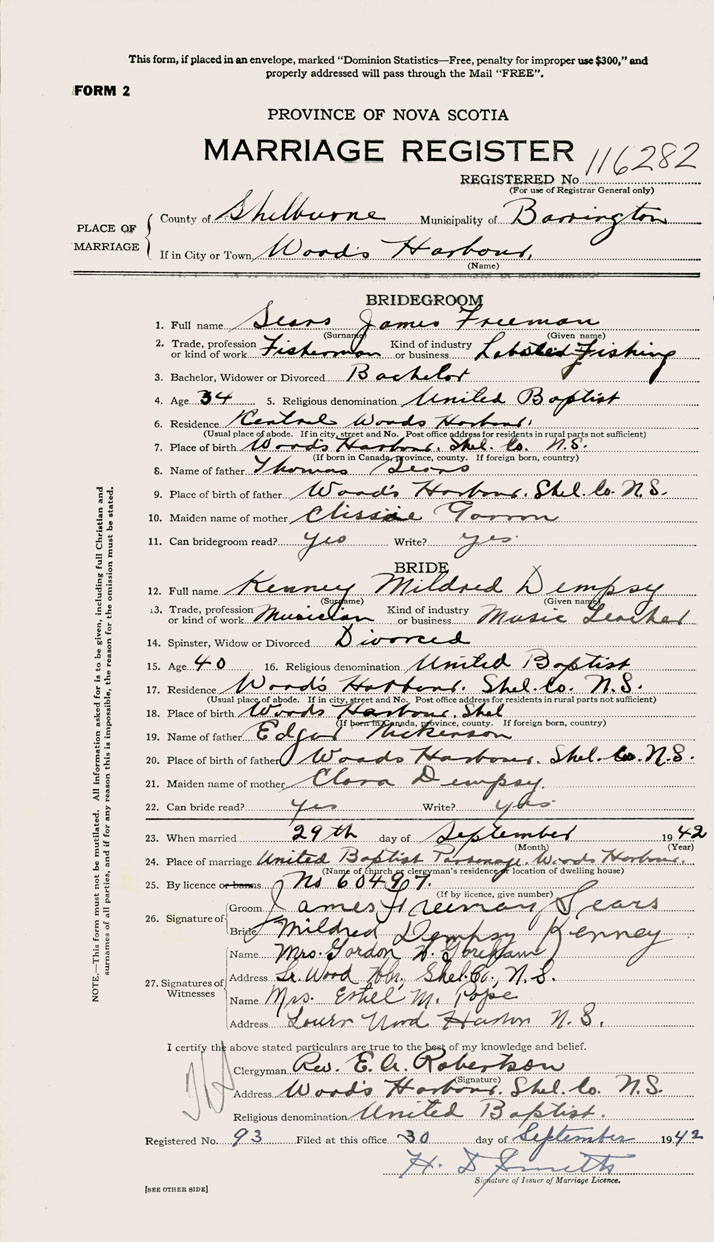 This form, if placed in an envelope, marked "Dominion Statistics—Free, penalty for improper use $300," and
properly addressed will pass through the Mail "FREE".
FORM 2
PROVINCE OF NOVA SCOTIA
MARRIAGE REGISTER
REGISTERED No 116282
(For use of Registrar General only)
PLACE OF MARRIAGE
County of Shelburne Municipality of Barrington
If in City or Town Wood's Harbour,
(Name)
BRIDEGROOM
1. Full name Sears James Freeman
(Surname) (Given name)
2. Trade, profession or kind of work Fisherman Kind of industry or business Lobster Fishing
3. Bachelor, Widower or Divorced Bachelor
4. Age 34 5. Religious denomination United Baptist
6. Residence Central Woods Harbour.
(Usual place of abode. If in city, street and No. Post office address for residents in rural parts not sufficient)
7. Place of birth Woods Harbour. Shel. Co. N.S.
(If born in Canada, province, county. If foreign born, country)
8. Name of father Thomas Sears
9. Place of birth of father Wood's Harbour. Shel. Co. N.S.
10. Maiden name of mother
11. Can bridegroom read? Yes Write? Yes.
BRIDE
12. Full name Kenney Mildred Dempsy
(Surname) (Given name)
13. Trade, profession or kind of work Musician Kind of industry or business Music Teacher
14. Spinster, Widow or Divorced Divorced
15. Age 40 16. Religious denomination United Baptist
17. Residence Wood's Harbour. Shel. Co. N.S.
(Usual place of abode. If in city, street and No. Post office address for residents in rural parts not sufficient)
18. Place of birth Woods Harbour. Shel
(If born in Canada, province, county. If foreign born, country)
19. Name of father Edgar Nickerson
20. Place of birth of father Woods Harbour. Shel. Co. N.S.
21. Maiden name of mother Clara Dempsy.
22. Can bride read? Yes Write? yes
23. When married 29th day of September 1942
(Month) (Year)
24. Place of marriage United Baptist Parsonage. Woods Harbour.
(Name of church or clergyman's residence or location of dwelling house)
25. By licence or banns No 60497.
(If by licence, give number)
26. Signature of
Groom James Freeman Sears
Bride Mildred Dempsy Kenney
27. Signatures of Witnesses
Name Mrs. Gordon
Address Lr. Wood Hbr, Shel. Co., N.S.
Name Mrs. M. Pope
Address Lower Wood Harbor N.S.
I certify the above stated particulars are true to the best of my knowledge and belief.
Clergyman Rev. E. A. Robertson
(Signature)
Address Wood's Harbour. Shel. Co. N.S.
Religious denomination United Baptist.
Registered No. 93 Filed at this office 30 day of September 1942
H. D Smith
Signature of Issuer of Marriage Licence.
[SEE OTHER SIDE]
NOTE.—This form must not be mutilated. All information asked for is to be given, including full Christian and
surnames of all parties, and if for any reason this is impossible, the reason for the omission must be stated.